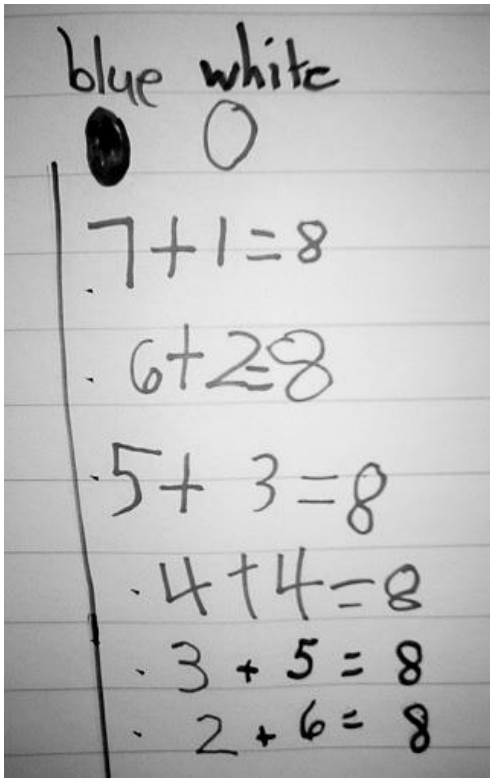 blue white
7+1=8
6+2=8
5+ 3=8
4+4=8
3 + 5 = 8
2 + 6 = 8